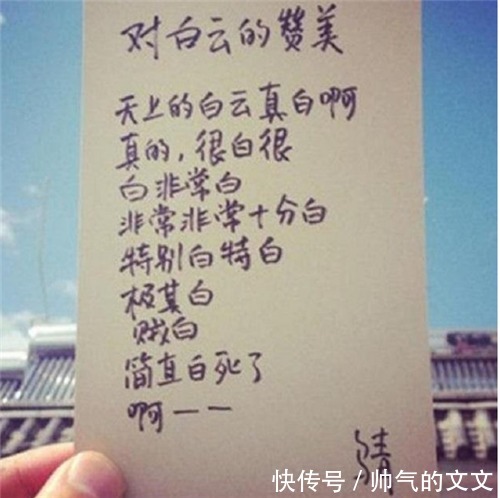 对白云的赞美
天上的白云真白啊
真的，很白很
白非常白
非常非常十分白
特别白特白
极其白
贼白
简直白死了
啊——
快传号 / 帅气的文文